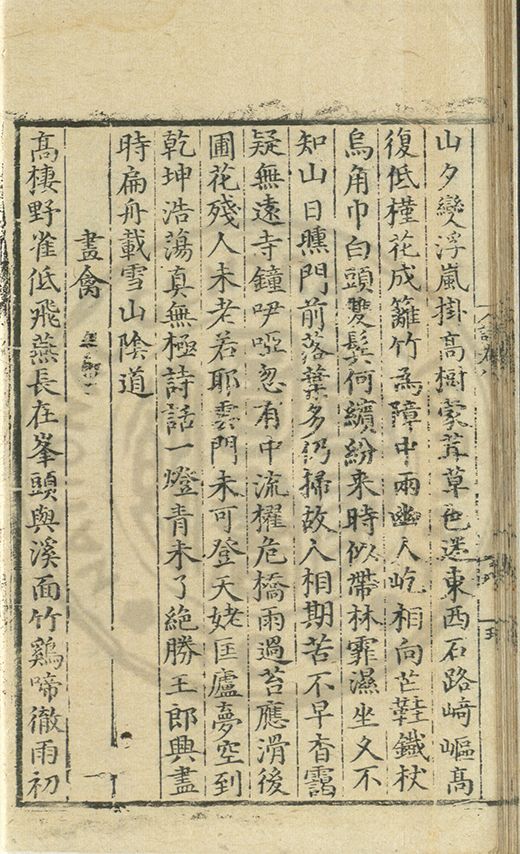 山夕變浮嵐掛高樹蒙茸草色迷東西石路﨑嶇高
復低槿花成籬竹爲障中兩幽人屹相向芒鞋鐵杖
烏角巾白頭雙鬂何繽紛來時似帶林霏濕坐久不
知山日曛門前落葉多仍掃故人相期苦不早杳靄
疑無遠寺鐘咿啞忽有中流櫂危橋雨過苔應滑後
圃花殘人未老若耶雲門未可登天姥匡廬夢空到
乾坤浩蕩真無極詩話一燈青未了絶勝王郎興盡
時扁舟載雪山隂道
畫禽
高棲野雀低飛燕長在峯頭與溪面竹鷄啼徹雨初